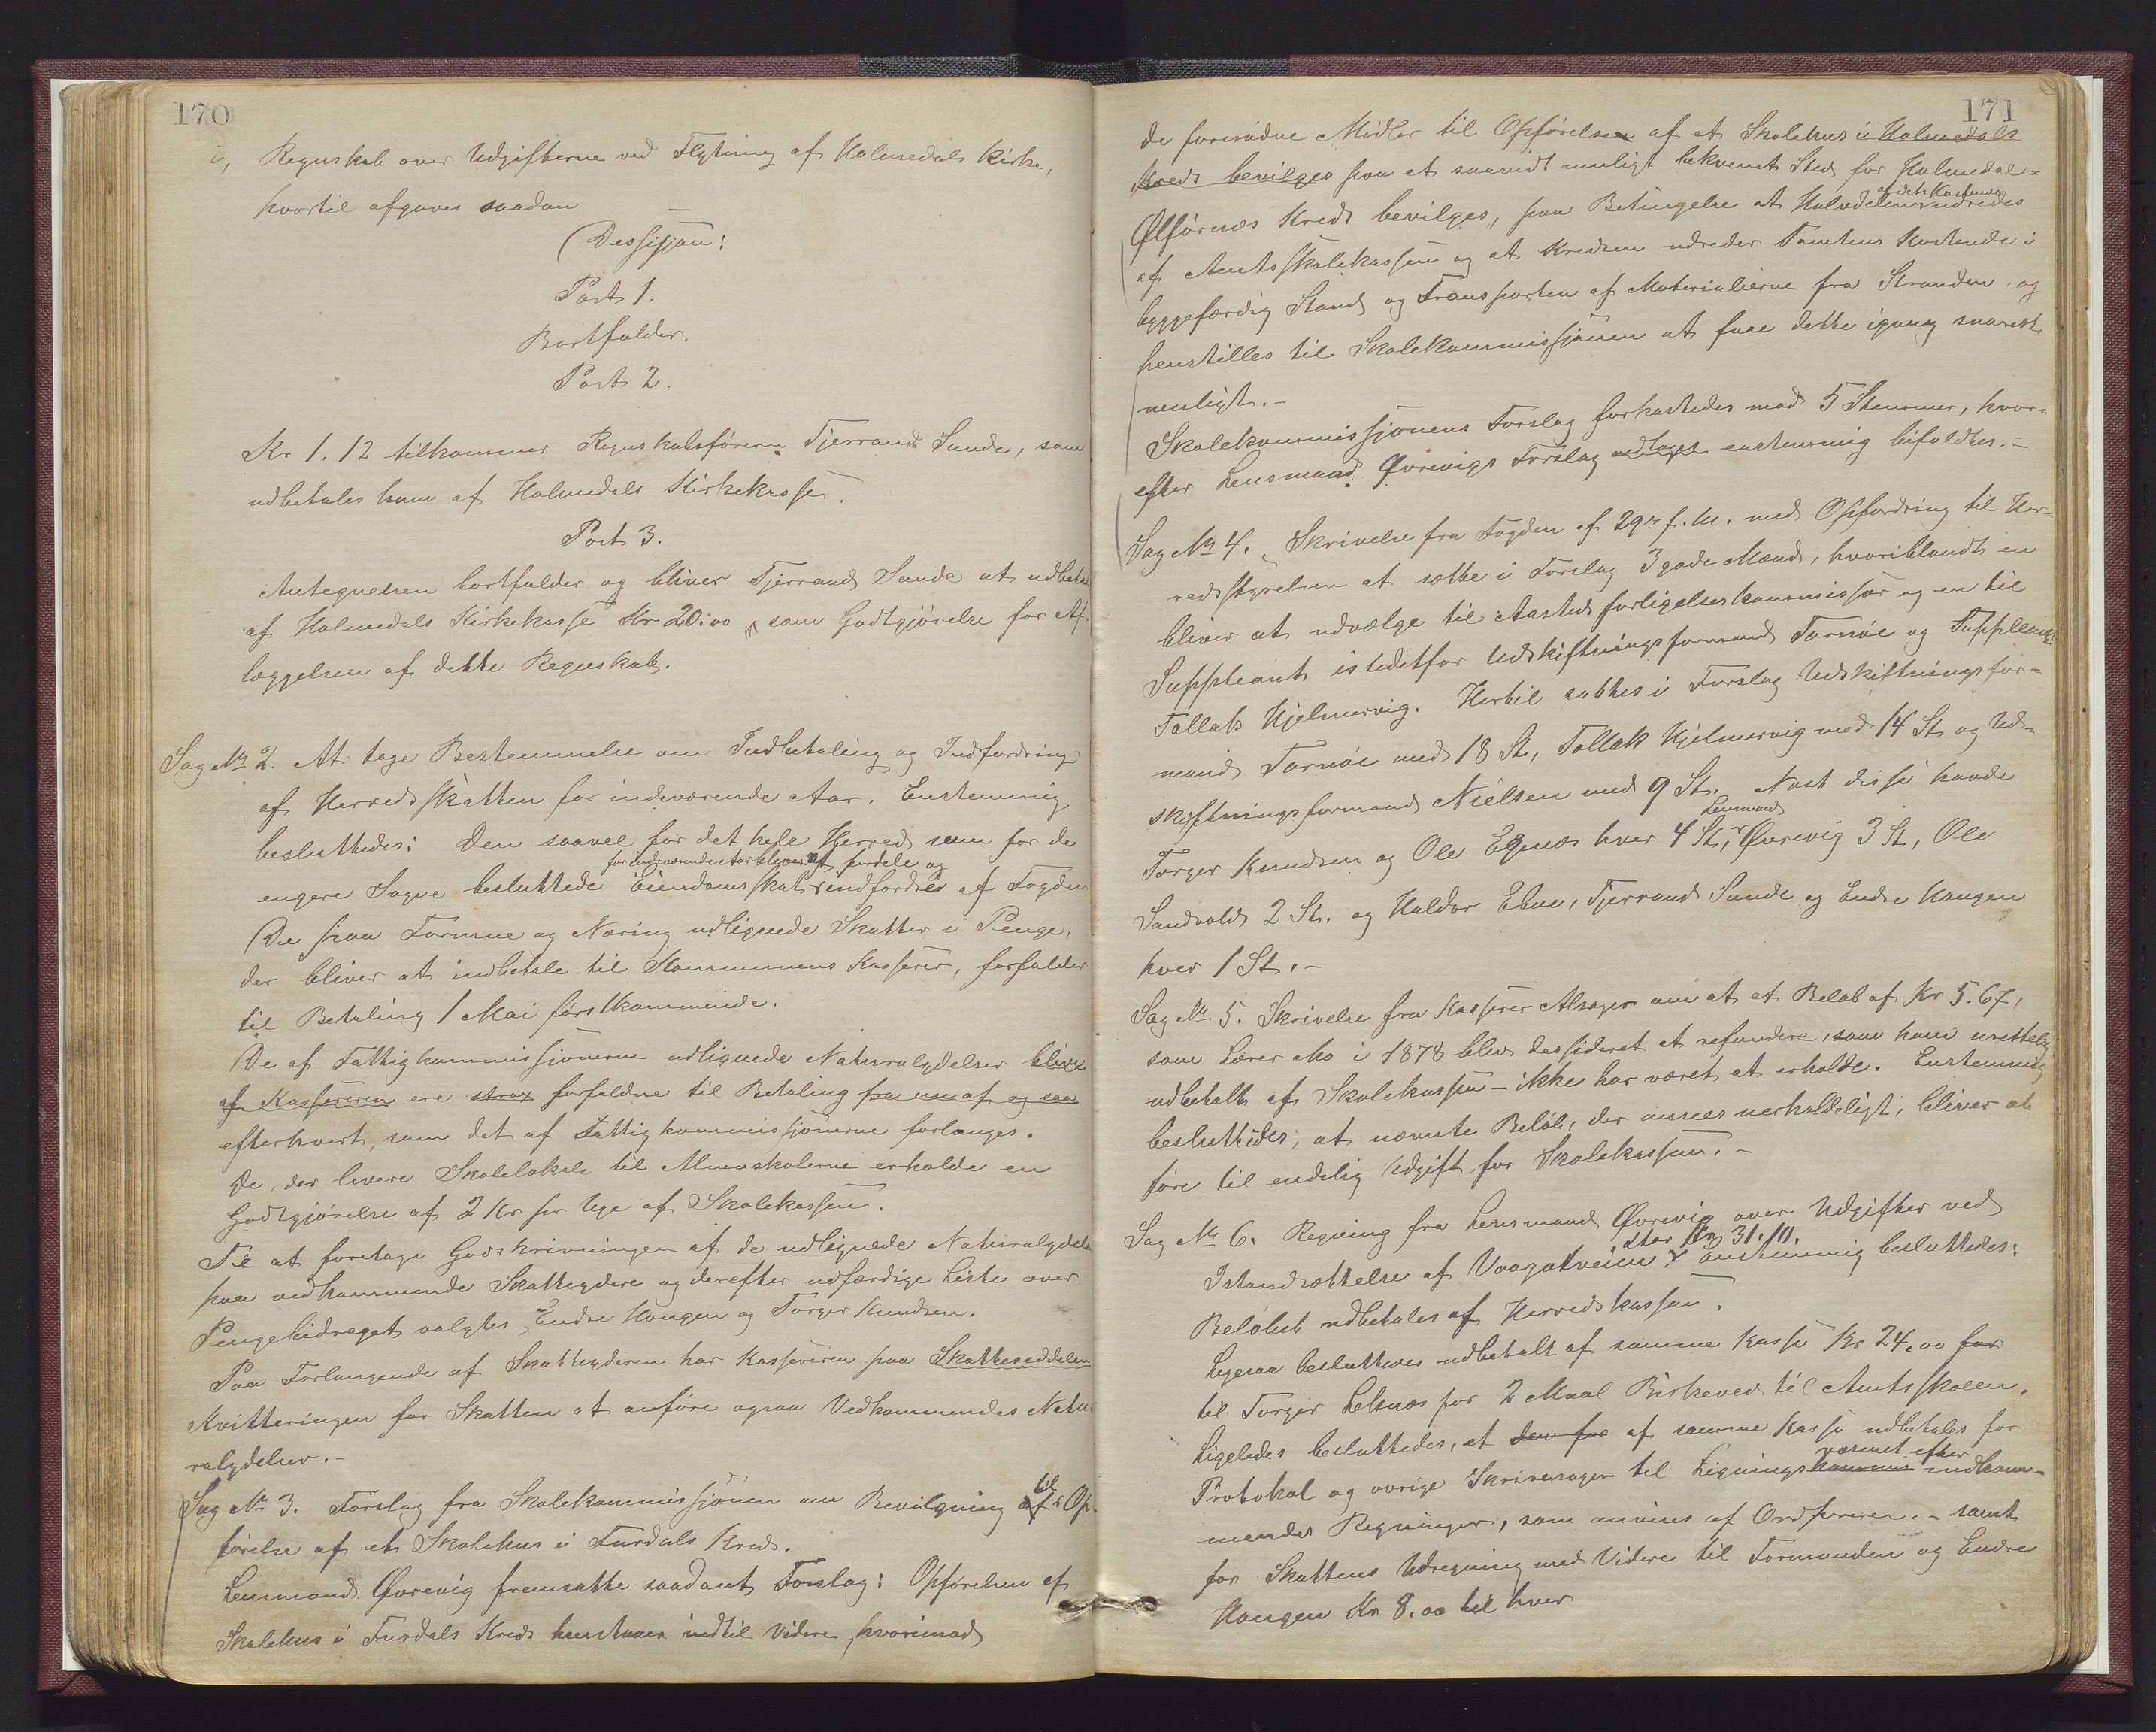 170
i, Regnskab over Udgifterne ved Flytning af Holmedals Kirke,
hvortil afgaves saadan
Dessisjon:
Post 1.
Bortfalder.
Post 2.
Kr 1.12 tilkommer Regnskabsføreren Tjerrand Sunde, som
udbetales ham af Holmedals Kirkekasse.
Post 3.
Antegnelsen bortfalder og bliver Tjerrand Sunde at udbetale
af Holmedals Kirkekasse Kr 20.00 som Godtgjørelse for Af-
læggelsen af dette Regnskab.
Sag No 2. At tage Bestemmelse om Indbetaling og Indfordring
af Herredsskatten for indeværende Aar. Enstemmig
besluttedes: Den saavel for det hele Herred som for de
for indeværende Aar bliver at fordele og
engere Sogne besluttede Eiendomsskat indfordres af Fogden
De paa Formue og Næring udlignede Skatter i Penge,
der bliver at indbetale til Kommunens Kasserer, forfalder
til Betaling 1 Mai førstkommende.
De af Fattigkommissjonerne udlignede Naturalydelser bliver
af Kassereren ere strax forfaldne til Betaling fra nu af og saa
efterhvert, som det af Fattigkommissjonerne forlanges.
De, der levere Skolelokale til Almuskolerne erholde en
Godtgjørelse af 2 Kr pr Uge af Skolekassen.
Til at foretage Godskrivningen af de udlignede Naturalydelser
paa vedkommende Skatteydere og derefter udfærdige Liste over
Pengebidraget valgtes Endre Haugen og Torger Knudsen.
Paa Forlangende af Skatteyderen har Kassereren paa Skatteseddelen
Kvitteringen for Skatten at anføre ogsaa Vedkommendes Natu-
ralydelser.-
Sag No 3. Forslag fra Skolekommissjonen om Bevilgning af til Op-
førelse af et Skolehus i Fursdals Kreds.
Lensmand Øvrevig fremsatte saadant Forslag: Opførelsen af
Skolehus i Fursdals Kreds henstaar indtil Videre, hvorimod
171
de forenødne Midler til Opførelsen af et Skolehus i Holmedals
Kreds bevilges paa et saavidt muligt bekvemt Sted for Holmedal-
Ølførnæs Kreds bevilges, paa Betingelse at Halvdelen af dets Kostende udredes
af Amtsskolekassen og at Kredsen udreder Tomtens Kostende i
byggefærdig Stand og Transporten af Materialierne fra Stranden, og
henstilles til Skolekommissjonen at faae dette igang snarest
muligt.-
Skolekommissjonens Forslag forkastedes mod 5 Stemmer, hvor-
efter Lensmand Øvrevigs Forslag vedtoges enstemmig bifaldtes.-
Sag No 4. Skrivelse fra Fogden af 29de f. M. med Opfordring til Her-
redsstyrelsen at sætte i Forslag 3 gode Mænd, hvoriblandt en
bliver at udvælge til Aastedsforligelseskommissær og en til
Suppleant istedetfor Udskiftningsformand Tornøe og Suppleant
Tollak Hjelmervig. Hertil sattes i Forslag Udskiftningsfor-
mand Tornøe med 18 St, Tollak Hjelmervig med 14 St og Ud-
skiftningsformand Nielsen med 9 St. Næst disse havde
Torger Knudsen og Ole Egnæs hver 4 St, Lensmand Øvrevig 3 St, Ole
Sandvold 2 St. og Haldor Ebne, Tjerrand Sunde og Endre Haugen
hver 1 St.-
Sag No 5. Skrivelse fra Kasserer Alsager om at et Beløb af Kr 5.67,
som Lærer Mo i 1878 blev dessideret at refundere, som ham urettelig
udbetalt af Skolekassen - ikke har været at erholde. Enstemmig
besluttedes; at nævnte Beløb, der ansees uerholdeligt, bliver at
føre til endelig Udgift for Skolekassen.-
Sag No 6. Regning fra Lensmand Øvrevig over Udgifter ved
Istandsættelse af Vaagatveien stor Kr 31.10. Enstemmig besluttedes:
Beløbet udbetales af Herredskassen.
Ligesaa besluttedes udbetalt af samme Kasse Kr 24.00 for
til Torger Lelsnæs for 2 Maal Birkeved til Amtsskolen.
Ligeledes besluttedes, at den fra af samme Kasse udbetales for
Protokol og øvrige Skriversager til Ligningskommis væsenet efter indkom-
mendes Regninger, som anvises af Ordføreren.- samt
for Skattens Udregning med Videre til Formanden og Endre
Haugen Kr 8.00 til hver